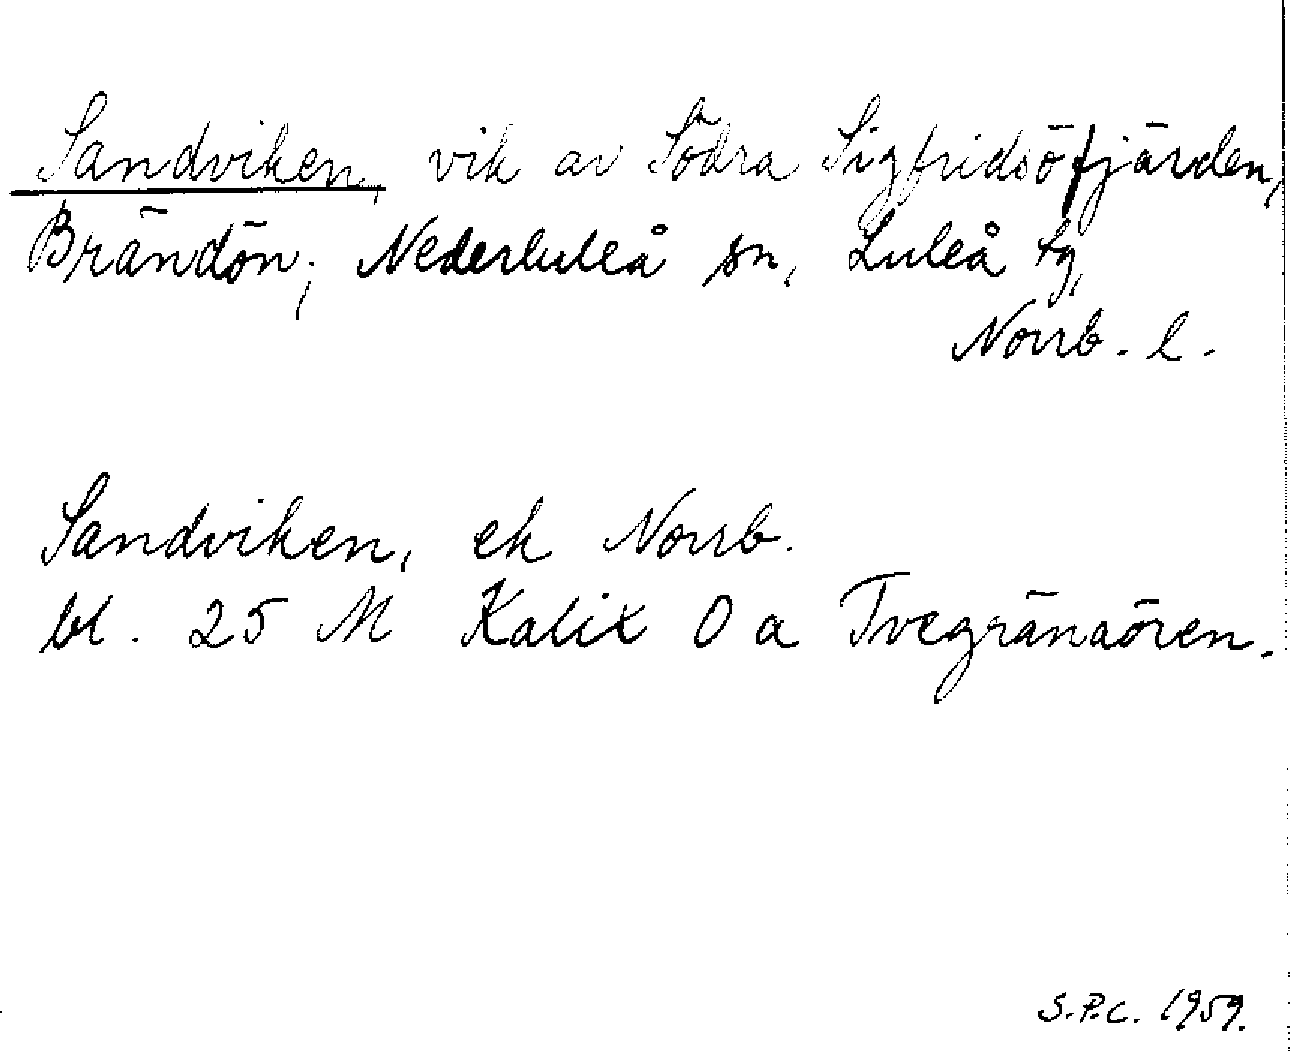 Sandviken, vik av Södra Sigfridsöfjärden,
Brändön; Nederluleå sn, Luleå tg,
Norrb. l.
Sandviken, ek Norrb.
bl. 25 M Kalix O a Tvegränaören.
S.P.C. 1959.